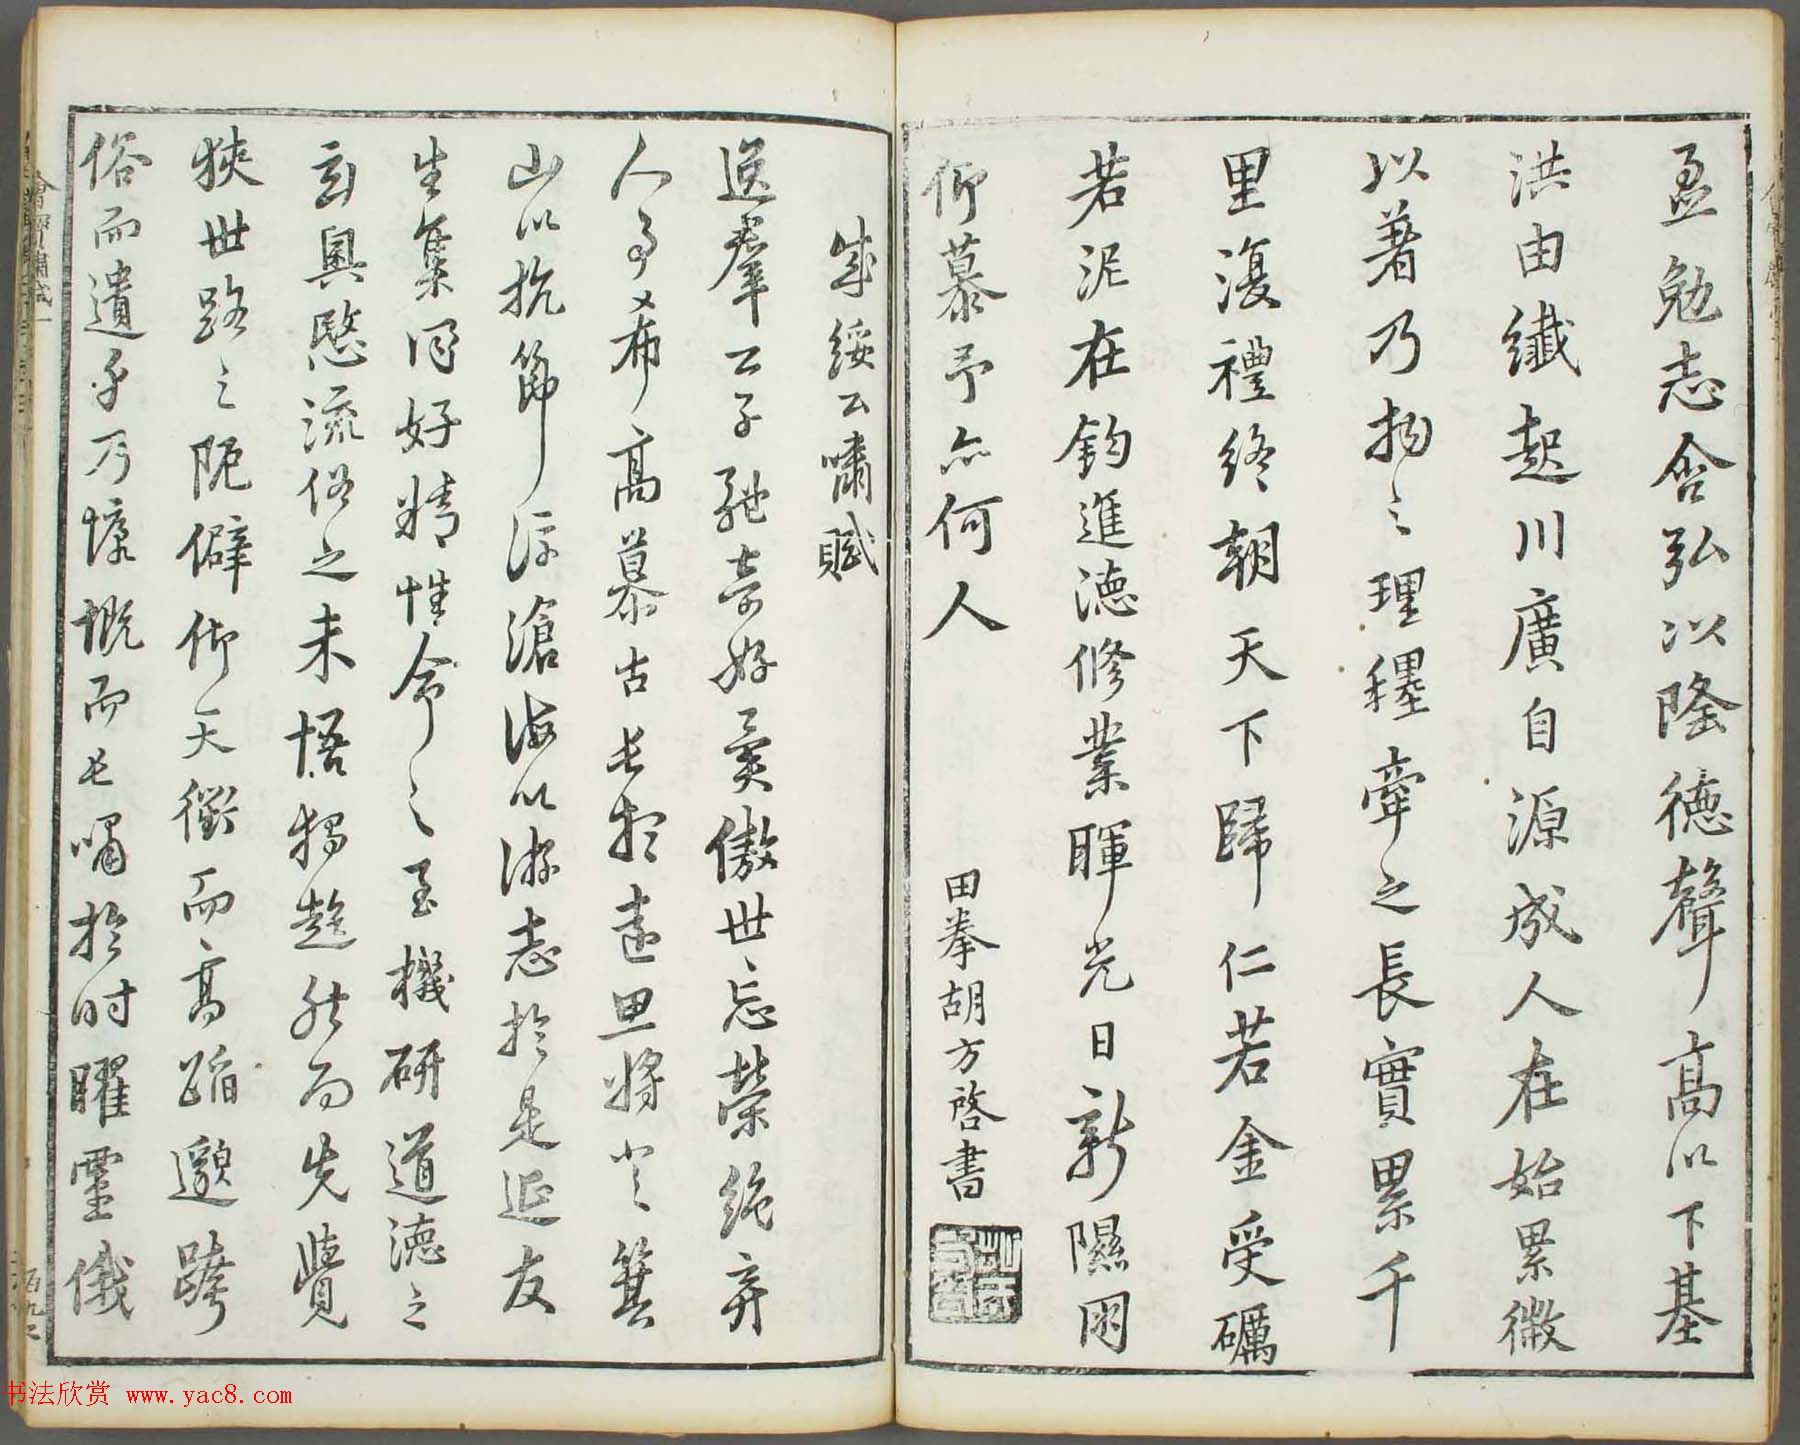 盈勉志含弘以隆德聲高以下基
洪由纖起川廣自源成人在始累微
以著乃物之理纆牽之長實累千
里復禮終朝天下歸仁若金受礪
若泥在鈞進德修業暉光日新隰朋
仰慕予亦何人
田拳胡方啓書
成綏公嘯賦
逸羣公子體奇好異傲世忘榮絕弃
人事希高慕古長想遠思將登箕
山以抗節浮滄海以游志於是延友
生集同好精性命之至機研道德之
玄奧愍流俗之未悟獨超然而先覺
狹世路之阨僻仰天衢而高蹈邈跨
俗而遺身乃慷慨而長嘯於时曜靈俄
书法欣赏 www.yac8.com